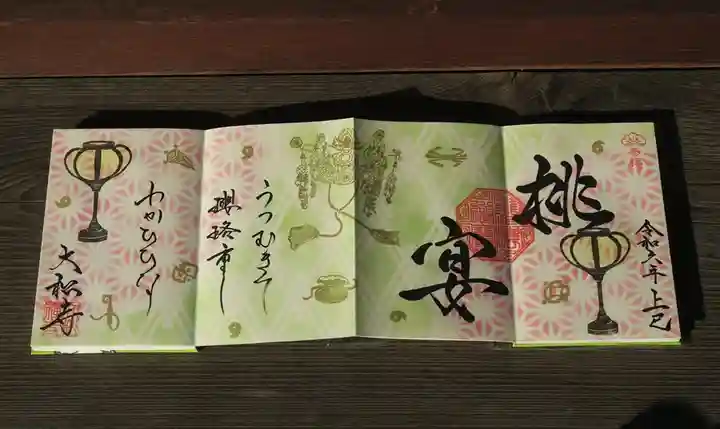 令和六年上巳
桃
宴
うつむきて
瓔珞重し
わかひひな
大松寺